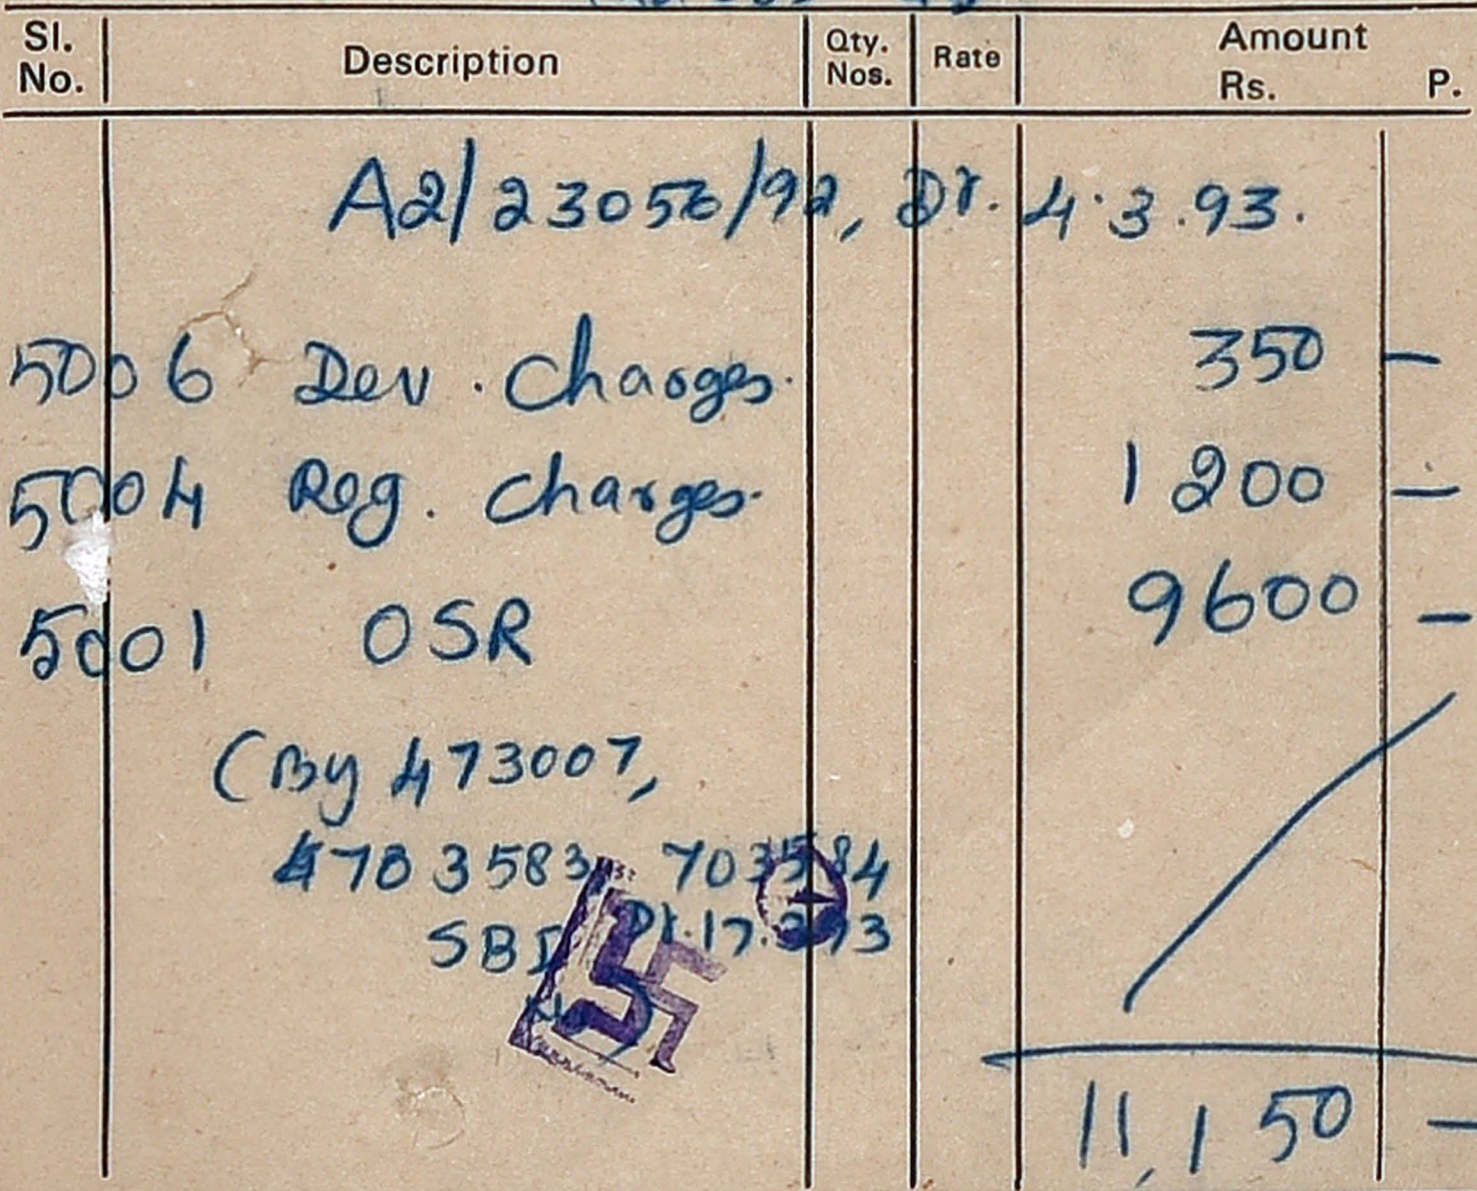 Sl. No. Description Qty. Nos. Rate Amount Rs. P.
A2/23056/92, Dt. 4.3.93.
5006 Dev. Charges. 350 -
5004 Reg. Charges. 1200 -
5001 OSR 9600 -
(By 473007,
4703583, 703584
SBI Dt. 17.3.93
11,150 -